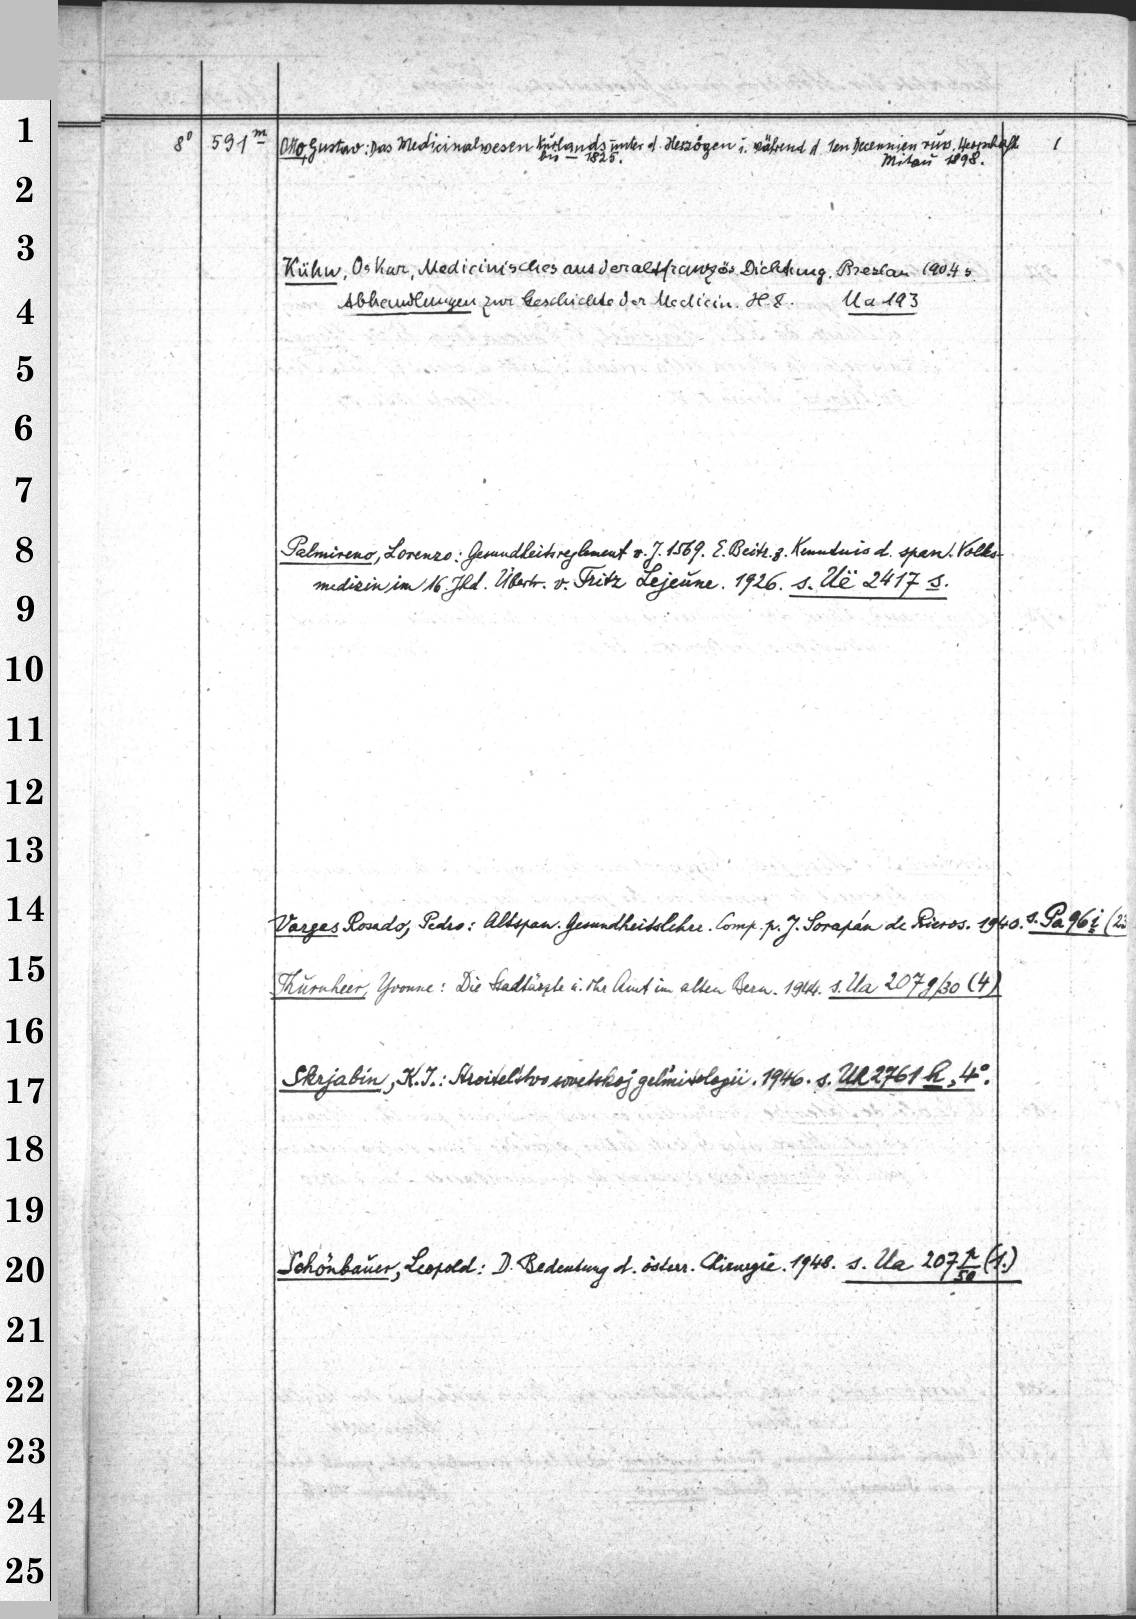 1
8° 591 m Otto, Gustav: Das Medicinalwesen Kurlands unter d. Herzögen u. während d. 1en Decennien russ. Herrschaft 1
bis 1825. Mitau 1898.
2
3
Kühn, Oskar, Medicinisches aus der altfranzös. Dichtung. Breslau 1904 s.
4
Abhandlungen zur Geschichte der Medicin. H. 8. Ua 193
5
6
7
8
Palmireno, Lorenzo: Gesundheitsreglement v. J. 1569. E. Beitr. z. Kenntnis d. span. Volks-
medizin im 16. Jhd. Übertr. v. Fritz Lejeune. 1926. s. Uë 2417 s.
9
10
11
12
13
14
Varges Rosado, Pedro: Altspan. Gesundheitslehre. Comp. p. J. Sorapán de Rieros. 1940. s. Pa 96 i (23
15
Thurnheer, Yvonne: Die Stadtärzte u. ihr Amt im alten Bern. 1944. s. Ua 207 g/30 (4)
16
17
Skrjabin, K. I.: Stroitel'stvo sovetskoj gel'mitologii. 1946. s. Ul 2761 h, 4°.
18
19
20
Schönbauer, Leopold: D. Bedeutung d. österr. Chirurgie. 1948. s. Ua 207 p/50 (1.)
21
22
23
24
25